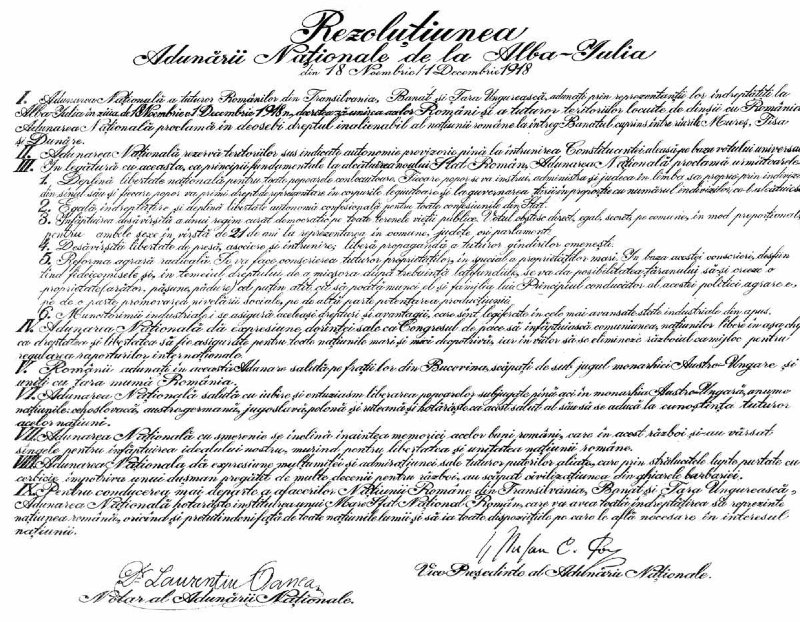 Rezoluțiunea
Adunării Naționale de la Alba-Iulia
din 18 Noembrie/1 Decembrie 1918
I. Adunarea Națională a tuturor Românilor din Transilvania, Banat și Țara Ungurească, adunați prin reprezentanții lor îndreptățiți la
Alba Iulia în ziua de 18 Noembrie/1 Decembrie 1918, decretează unirea acelor Români și a tuturor teritoriilor locuite de dînșii cu România.
Adunarea Națională proclamă în deosebi dreptul inalienabil al națiunii române la întreg Banatul cuprins între rîurile Mureș, Tisa
și Dunăre.
II. Adunarea Națională rezervă teritoriilor sus indicate autonomie provizorie pînă la întrunirea Constituantei aleasă pe baza votului universal.
III. In legătură cu aceasta, ca principii fundamentale la alcătuirea noului Stat Român, Adunarea Națională proclamă următoarele:
1. Deplină libertate națională pentru toate popoarele conlocuitoare. Fiecare popor se va instrui, administra și judeca în limba sa proprie prin indivizi
din sînul său și fiecare popor va primi drept de reprezentare în corpurile legiuitoare și la guvernarea țării în proporție cu numărul indivizilor ce-l alcătuiesc.
2. Egală îndreptățire și deplină libertate autonomă confesională pentru toate confesiunile din Stat.
3. Infăptuirea desăvîrșită a unui regim curat democratic pe toate terenele vieții publice. Votul obștesc, direct, egal, secret, pe comune, în mod proporțional,
pentru ambele sexe în vîrstă de 21 de ani la reprezentarea în comune, județe ori parlament.
4. Desăvîrșită libertate de presă, asociere și întrunire; liberă propagandă a tuturor gîndirilor omenești.
5. Reforma agrară radicală. Se va face conscrierea tuturor proprietăților, în special a proprietăților mari. In baza acestei conscrieri, desființ
înd fideicomisele și, în temeiul dreptului de a micșora după trebuință latifundiile, se va da posibilitatea țăranului să-și creeze o
proprietate (arător, pășune, pădure) cel puțin atît cît să poată munci el și familia lui. Principiul conducător al acestei politici agrare e,
pe de o parte promovarea nivelării sociale, pe de altă parte potențarea producțiunii.
6. Muncitorimii industriale i se asigură aceleași drepturi și avantagii, care sînt legiferate în cele mai avansate state industriale din apus.
IV. Adunarea Națională dă expresiune dorinței sale ca Congresul de pace să înfăptuiască comuniunea națiunilor libere în așa chip
ca dreptatea și libertatea să fie asigurate pentru toate națiunile mari și mici deopotrivă, iar în viitor să se elimineze războiul ca mijloc pentru
regularea raporturilor internaționale.
V. Românii adunați în această Adunare salută pe frații lor din Bucovina, scăpați de sub jugul monarhiei Austro-Ungare și
uniți cu țara mumă România.
VI. Adunarea Națională salută cu iubire și entuziasm liberarea popoarelor subjugate pînă aci în monarhia Austro-Ungară, anume
națiunile: cehoslovacă, austrogermană, jugoslavă, polonă și ruteană și hotărăște ca acest salut al său să se aducă la cunoștința tuturor
acelor națiuni.
VII. Adunarea Națională cu smerenie se înclină înaintea memoriei acelor buni români, care în acest război și-au vărsat
sîngele pentru înfăptuirea idealului nostru, murind pentru libertatea și unitatea națiunii române.
VIII. Adunarea Naționala dă expresiune mulțumitei și admirațiunei sale tuturor puterilor aliate, care prin strălucitele lupte purtate cu
cerbicie împotriva unui dușman pregătit de multe decenii pentru război, au scăpat civilizațiunea din ghiarele barbariei.
IX. Pentru conducerea mai departe a afacerilor Națiunii Române din Transilvania, Banat și Țara Ungurească,
Adunarea Națională hotărăște instituirea unui Mare Sfat Național Român, care va avea toată îndreptățirea să reprezinte
națiunea română, oricînd și pretutindeni față de toate națiunile lumii și să ia toate dispozițiile pe care le află necesare în interesul
națiunii.
Dr. Laurențiu Oanea
Notar al Adunării Naționale.
Vice Președinte al Adunării Naționale.